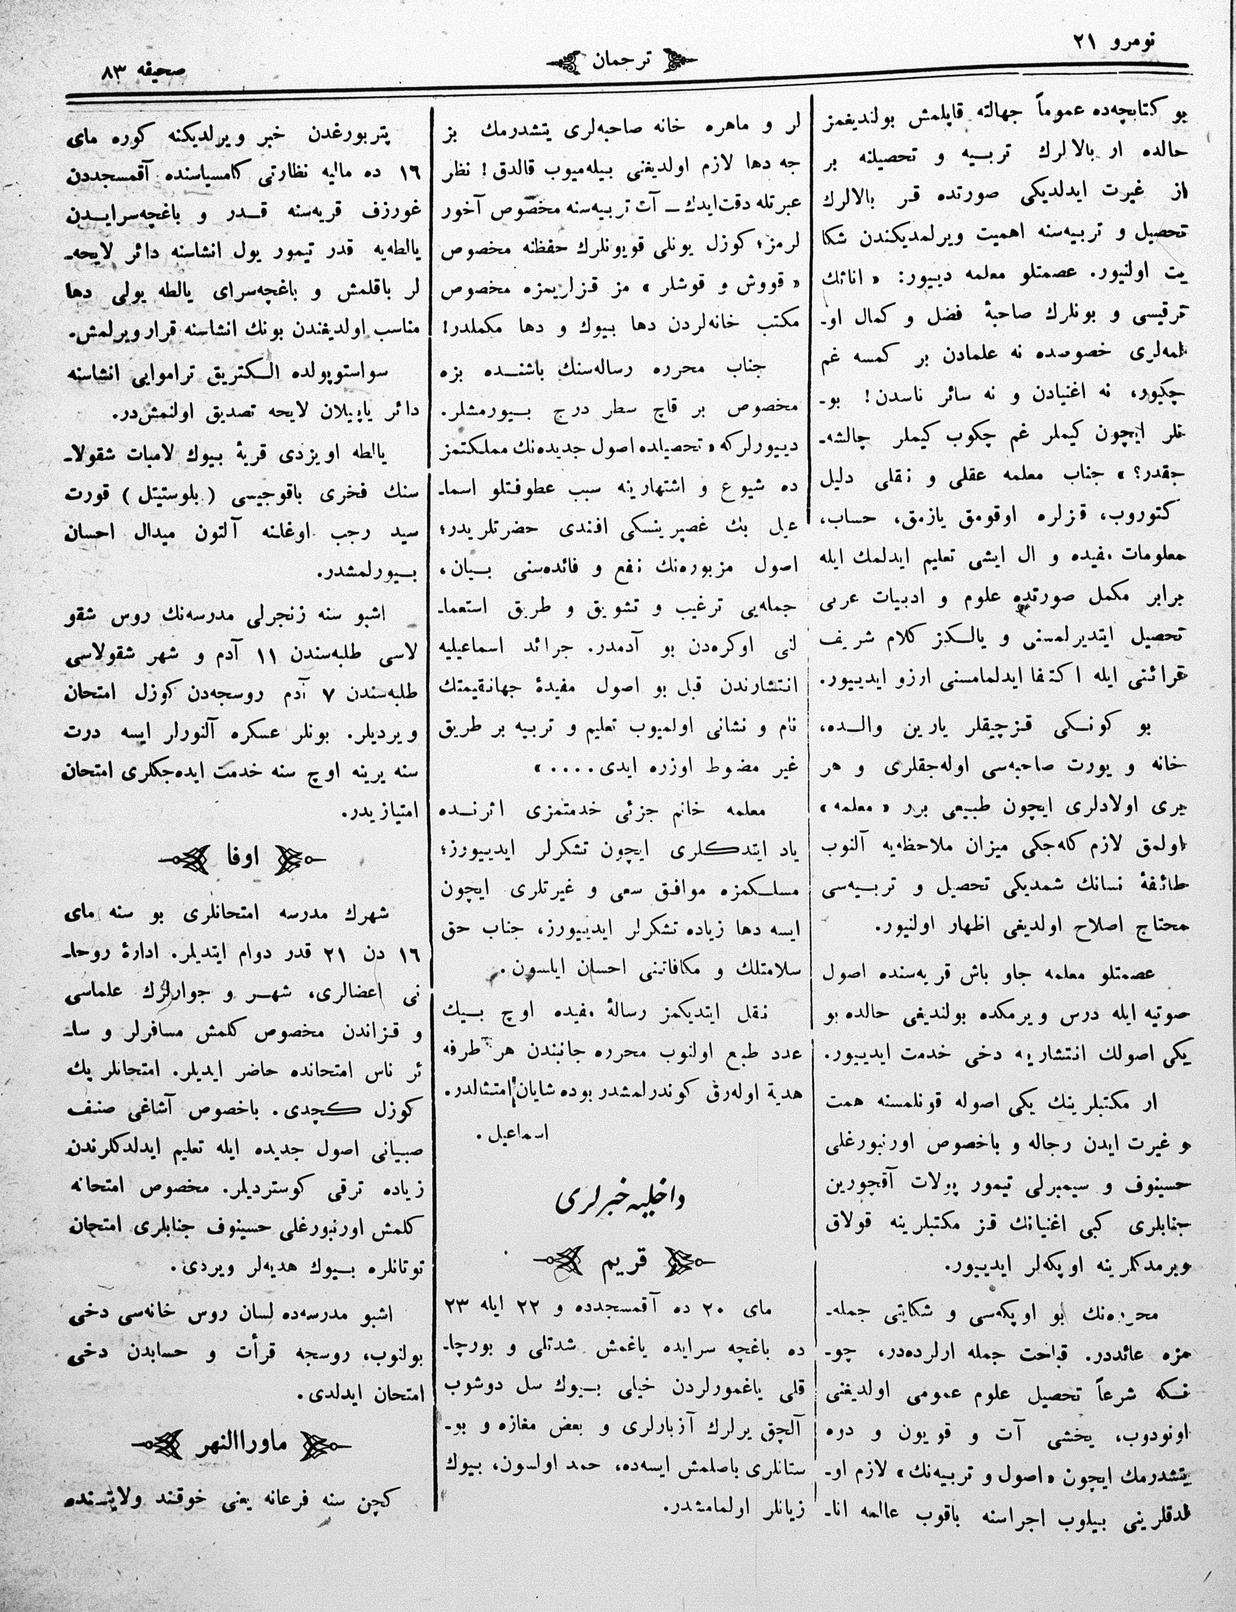 نومرو ٢١
ترجمان
صحیفه ٨٣
بو كتابچه‌ده عموماً جهالته قاپلمش بولندیغمز
حالده ار بالالرك تربیه و تحصیلنه بر
از غیرت ایدلدیكی صورتده قز بالالرك
تحصیل و تربیه‌سنه اهمیت ویرلمدیكندن شكا
یت اولنیور. عصمتلو معلمه دیییور: «اناثك
ترقیسی و بونلرك صاحبهٔ فضل و كمال او-
لمه‌لری خصوصده نه علمادن بر كمسه غم
چكیور، نه اغنیادن و نه سائر ناسدن! بو-
نلر ایچون كیملر غم چكوب كیملر چالشه-
جقدر؟» جناب معلمه عقلی و نقلی دلیل
كتوروب، قزلره اوقومق یازمق، حساب،
معلومات مفیده و ال ایشی تعلیم ایدلمك ایله
برابر مكمل صورتده علوم و ادبیات عربی
تحصیل ایتدیرلمسنی و یالكز كلام شریف
قرائتی ایله اكتفا ایدلمامسنی ارزو ایدییور.
بو كونكی قزچیقلر یارین والده،
خانه و یورت صاحبه‌سی اوله‌جقلری و هر
بری اولادلری ایچون طبیعی برر «معلمه»
اولمق لازم كله‌جكی میزان ملاحظه‌یه آلنوب
طائفهٔ نسانك شمدیكی تحصیل و تربیه‌سی
محتاج اصلاح اولدیغی اظهار اولنیور.
عصمتلو معلمه جاو باش قریه‌سنده اصول
صوتیه ایله درس ویرمكده بولندیغی حالده بو
یكی اصولك انتشارینه دخی خدمت ایدییور.
ار مكتبلرینك یكی اصوله قونلمسنه همت
و غیرت ایدن رجاله و باخصوص اورنبورغلی
حسینوف و سیمبرلی تیمور پولات آقچورین
جنابلری كبی اغنیانك قز مكتبلرینه قولاق
ویرمدكلرینه اوپكه‌لر ایدییور.
محرره‌نك بو اوپكه‌سی و شكایتی جمله-
مزه عائددر. قباحت جمله ارلرده‌در، چو-
نكه شرعاً تحصیل علوم عمومی اولدیغنی
اونودوب، یخشی آت و قویون و دوه
یتشدرمك ایچون «اصول و تربیه‌نك» لازم او-
لدقلرینی بیلوب اجراسنه باقوب عالمه انا-
لر و ماهره خانه صاحبه‌لری یتشدرمك بز
جه دها لازم اولدیغنی بیله‌میوب قالدق! نظر
عبرتله دقت ایدك — آت تربیه‌سنه مخصوص آخور
لرمز؛ كوزل یونلی قویونلرك حفظنه مخصوص
«قووش و قوشلر» مز قزلریمزه مخصوص
مكتب خانه‌لردن دها بیوك و دها مكملدر!
جناب محرره رساله‌سنك باشنده بزه
مخصوص بر قاچ سطر درج بیورمشلر.
دیییورلركه «تحصیلده اصول جدیده‌نك مملكتمز
ده شیوع و اشتهارینه سبب عطوفتلو اسما-
عیل بك غصپرینسكی افندی حضرتلریدر؛
اصول مزبوره‌نك نفع و فائده‌سنی بیان،
جمله‌یی ترغیب و تشویق و طریق استعما-
لنی اوكره‌دن بو آدمدر. جرائد اسماعیلیه
انتشارندن قبل بو اصول مفیدهٔ جهانقیمتك
نام و نشانی اولمیوب تعلیم و تربیه بر طریق
غیر مضبوط اوزره ایدی....»
معلمه خانم جزئی خدمتمزی اثرنده
یاد ایتدكلری ایچون تشكرلر ایدییورز؛
مسلكمزه موافق سعی و غیرتلری ایچون
ایسه دها زیاده تشكرلر ایدییورز، جناب حق
سلامتلك و مكافاتنی احسان ایلسون.
نقل ایتدیكمز رسالهٔ مفیده اوچ بیك
عدد طبع اولنوب محرره جانبندن هر طرفه
هدیة اوله‌رق كوندرلمشدر بوده شایان امتثالدر.
اسماعیل.
داخلیه خبرلری
قریم
مای ٢٠ ده آقمسجدده و ٢٢ ایله ٢٣
ده باغچه سرایده یاغمش شدتلی و بورچا-
قلی یاغمورلردن خیلی بیوك سل دوشوب
آلچق یرلرك آزبارلری و بعض مغازه و بو-
ستانلری باصلمش ایسه‌ده، حمد اولسون، بیوك
زیانلر اولمامشدر.
پتربورغدن خبر ویرلدیكنه كوره مای
١٦ ده مالیه نظارتی كامسیاسنده آقمسجددن
غورزف قریه‌سنه قدر و باغچه‌سرایدن
یالطه‌یه قدر تیمور یول انشاسنه دائر لایحه-
لر باقلمش و باغچه‌سرای یالطه یولی دها
مناسب اولدیغندن بونك انشاسنه قرار ویرلمش.
سواستوپولده الكتریق تراموایی انشاسنه
دائر یاپیلان لایحه تصدیق اولنمش‌در.
یالطه اویزدی قریهٔ بیوك لامبات شقولا-
سنك فخری باقوجیسی (بلوستیتل) قورت
سید رجب اوغلنه آلتون میدال احسان
بیورلمشدر.
اشبو سنه زنجرلی مدرسه‌نك روس شقو
لاسی طلبه‌سندن ١١ آدم و شهر شقولاسی
طلبه‌سندن ٧ آدم روسجه‌دن كوزل امتحان
ویردیلر. بونلر عسكره آلنورلر ایسه درت
سنه یرینه اوچ سنه خدمت ایده‌جكلری امتحان
امتیازیدر.
اوفا
شهرك مدرسه امتحانلری بو سنه مای
١٦ دن ٢١ قدر دوام ایتدیلر. ادارهٔ روحا-
نی اعضالری، شهر و جوارلرك علماسی
و قزاندن مخصوص كلمش مسافرلر و سا-
ئر ناس امتحانده حاضر ایدیلر. امتحانلر پك
كوزل كچدی. باخصوص آشاغی صنف
صبیانی اصول جدیده ایله تعلیم ایدلدكلرندن
زیاده ترقی كوستردیلر. مخصوص امتحانه
كلمش اورنبورغلی حسینوف جنابلری امتحان
توتانلره بیوك هدیه‌لر ویردی.
اشبو مدرسه‌ده لسان روس خانه‌سی دخی
بولنوب، روسجه قرأت و حسابدن دخی
امتحان ایدلدی.
ماوراالنهر
كچن سنه فرغانه یعنی خوقند ولایتنده